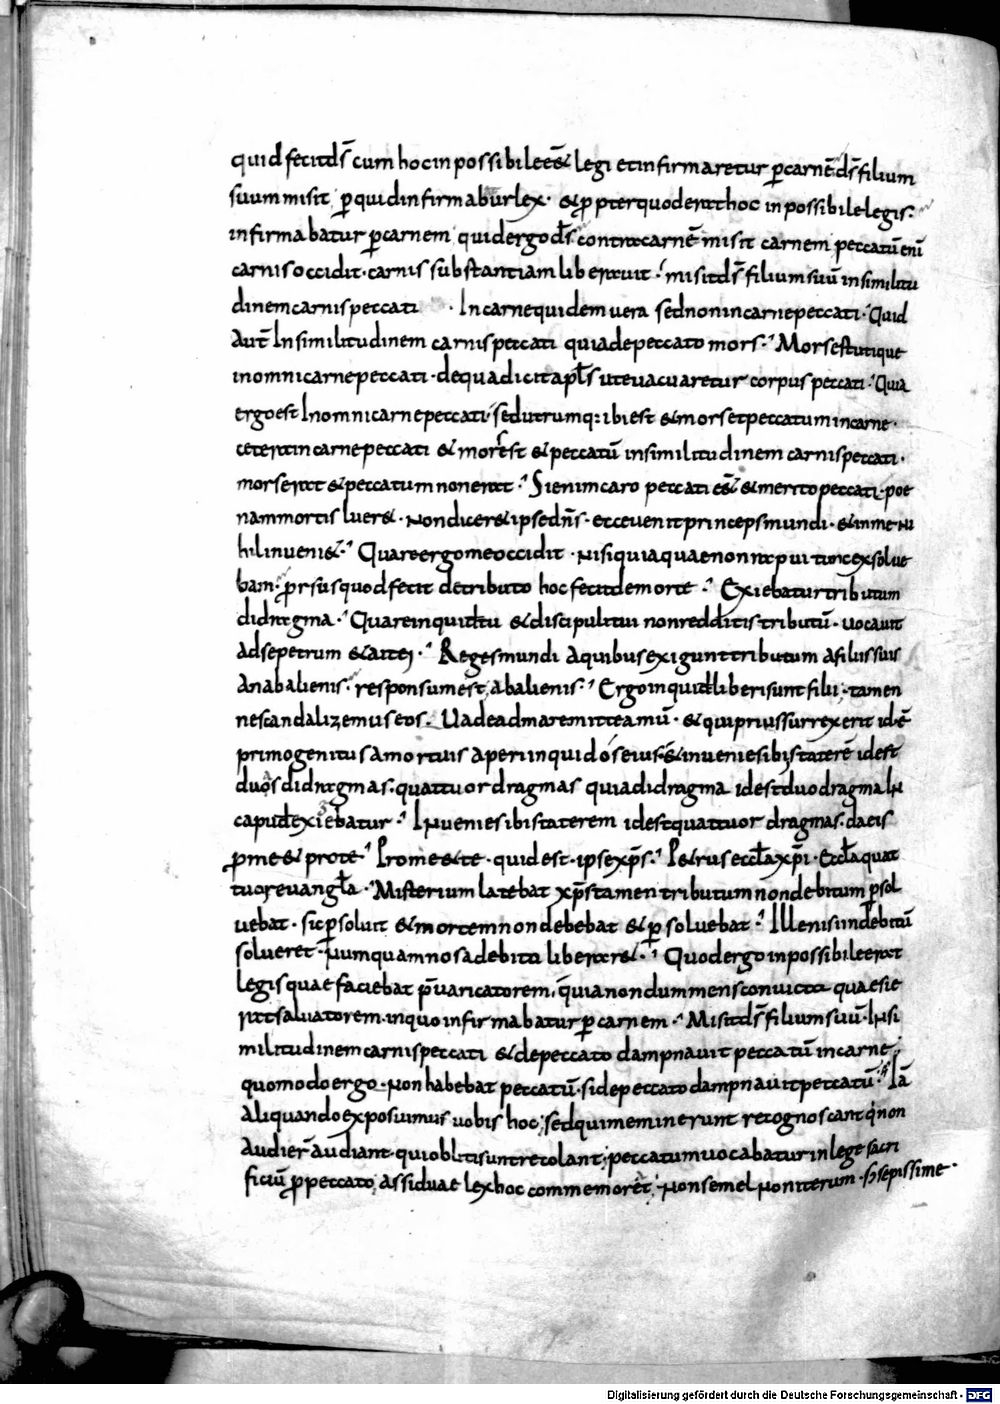 quid fecit d̄s cum hoc inpossibile eēt legi et infirmaretur p̄ carnē d̄s filium
suum misit, p̄ quid infirmabur lex · & p̄pter quod erat hoc inpossibile legis :
infirmabatur p̄ carnem quid ergo d̄s contra carnē misit carnem peccatū eni
carnis occidit · carnis substantiam liberauit : misit d̄s filium suū in similitu
dinem carnis peccati · In carne quidem uera sed non in carne peccati · Quid
Aut̄ In similitudinem carnis peccati quia de peccato mors · Mors est utique
in omni carne peccati · de qua dicit ap̄ls ut euacuaretur corpus peccati · Quia
ergo est In omni carne peccati · sed utrumq: ibi est & mors et peccatum in carne ·
ceterat in carne peccati & mors est & peccatū in similitudinem carnis peccati ·
mors erat & peccatum non erat · Si enim caro peccati eēt & merito peccati · poe
nam mortis luer& · Non dicer& ipse dn̄s · ecce uenit princeps mundi · & in me ni
hil inueni& · Quare ergo me occidit · Nisi quia quae non rapui tunc exsolue
bam · prorsus quod fecit de tributo hoc fecit de morte · Exiebatur tributum
didragma · Quare inquit tu & discipuli tui non redditis tributū · uocauit
ad se petrum & ait ej · Reges mundi A quibus exigunt tributum a filiis suis
An ab alienis · responsum est, ab alienis · Ergo inquit liberi sunt filii · tamen
ne scandalizemus eos · Uade ad mare mitte amū · & qui prius surrexerit id ē
primogenitus a mortuis aperi inquid ós eius · & inuenies ibi staterē id est
duos didragmas · quattuor dragmas quia didragma id est duo dragma In
capud exiebatur · Inuenies ibi staterem id est quattuor dragmas · da eis
p̄ me & pro te · Pro me & te · quid est · ipse xp̄s · P&rus eccl̄a xp̄i · Eccl̄a quat
tuor euangl̄a · Misterium latebat xp̄s tamen tributum non debitum p̄sol
uebat · sic p̄soluit & mortem non debebat & p̄soluebat · Ille nisi indebitū
solueret · Numquam nos a debita liberar& · Quod ergo inpossibile erat
legis quae faciebat p̄uaricatorem, quia nondum mens conuicta quaesie
rat saluatorem · in quo infirmabatur p̄ carnem · Misit d̄s filium suū · In si
militudinem carnis peccati & de peccato dampnauit peccatū in carne ;
quomodo ergo · Non habebat peccatū · si de peccato dampnauit peccatū · Iā
Aliquando exposuimus uobis hoc ; sed qui meminerunt recognoscant q̄ non
Audier̄ audiant · qui obliti sunt recolant ; peccatum uocabatur in lege sacri
ficiū p̄ peccato, assiduae lex hoc commemoret ; Non semel non iterum · s; sepissime ·
Digitalisierung gefördert durch die Deutsche Forschungsgemeinschaft · DFG